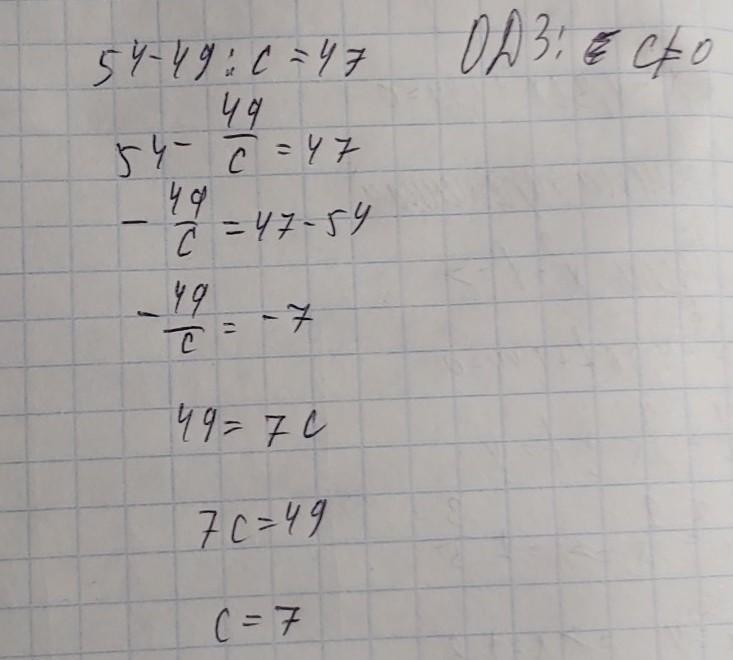 54-49:c=47 ОДЗ: c≠0
54-49/c=47
-49/c=47-54
-49/c=-7
49=7c
7c=49
c=7